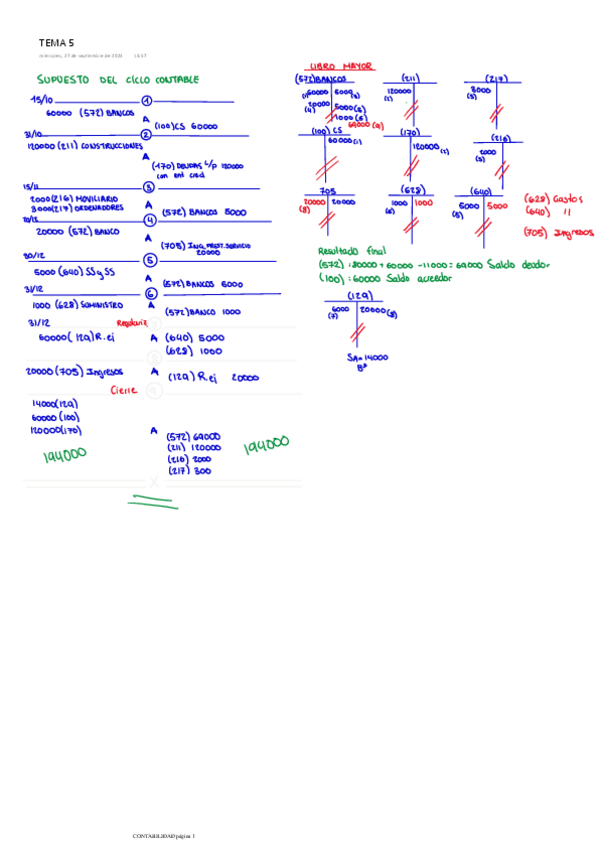 TEMA 5
miércoles, 27 de septiembre de 2023 16:57
SUPUESTO DEL CICLO CONTABLE
15/10 1
60000 (572) BANCOS
A
(100) CS 60000
31/10 2
120000 (211) CONSTRUCCIONES
A
(170) DEUDAS L/P 120000
con ent cred
15/11 3
2000 (216) MOVILIARIO
3000 (217) ORDENADORES
A
(572) BANCOS 5000
4
20000 (572) BANCO
A
(705) ING. PREST. SERVICIO
20000
30/12 5
5000 (640) SS y SS
A
(572) BANCOS 5000
31/12 6
1000 (628) SUMINISTRO A
(572) BANCO 1000
31/12 Regulariz
60000 (129) R. ej A (640) 5000
(628) 1000
20000 (705) Ingresos A (129) R. ej 20000
Cierre
14000 (129)
60000 (100)
120000 (170)
A
(572) 69000
(211) 120000
(216) 2000
(217) 300
194000 194000
LIBRO MAYOR
(572) BANCOS (211) (217)
(1) 60000 5000 (3) 120000 3000
20000 5000 (5) (2) (3)
(4) 1000 (6)
69000 (9)
(100) CS (170) (216)
60000 (1) 120000 (2) 2000
(3)
705 (628) (640)
20000 20000 1000 1000 5000 5000
(8) (6) (5)
(628) Gastos
(640) "
(705) Ingresos
Resultado final
(572): 20000 + 60000 - 11000 = 69000 Saldo deudor
(100): 60000 Saldo acreedor
(129)
6000 20000 (8)
(7)
SA = 14000
Bº
CONTABILIDAD página 1